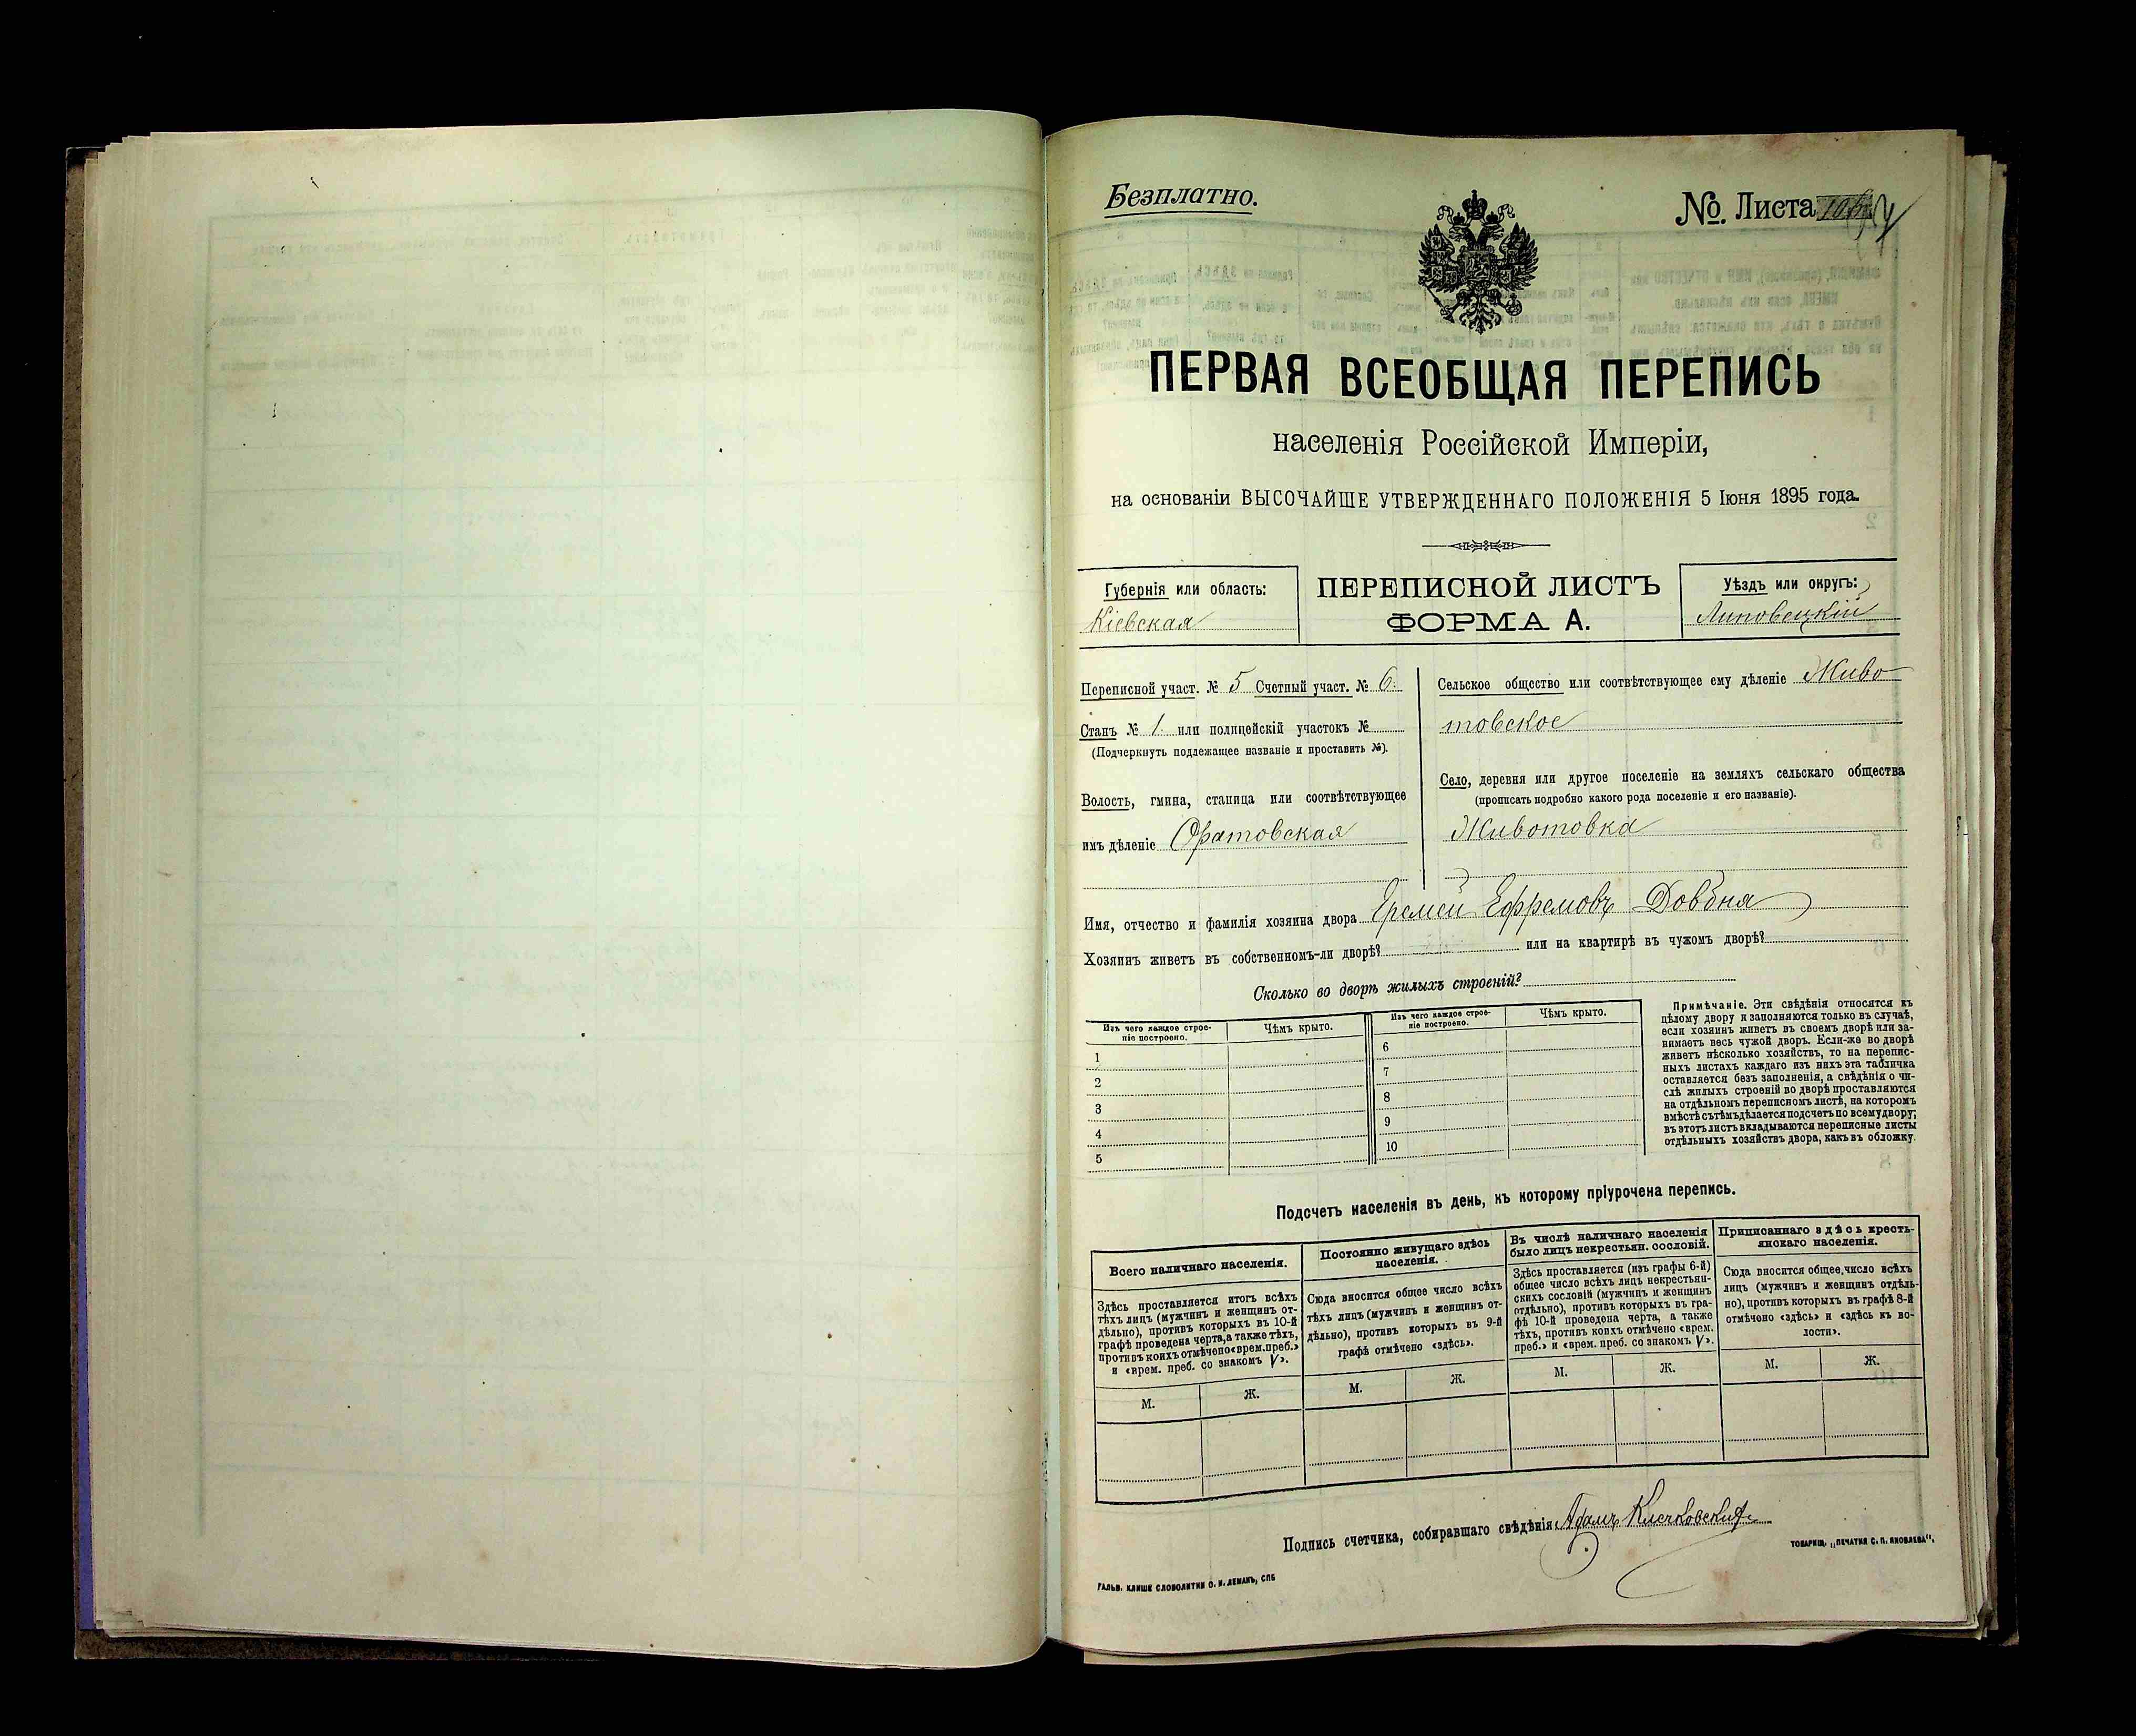 Безплатно.
№ Листа
ПЕРВАЯ ВСЕОБЩАЯ ПЕРЕПИСЬ
населенія Россійской Имперіи,
на основаніи ВЫСОЧАЙШЕ УТВЕРЖДЕННАГО ПОЛОЖЕНІЯ 5 Іюня 1895 года.
Губернія или область:
Кіевская
ПЕРЕПИСНОЙ ЛИСТЪ
ФОРМА А.
Уѣздъ или округъ:
Липовецкій
Переписной участ. № 5 Счетный участ. № 6.
Станъ № 1. или полицейскій участокъ №
(Подчеркнуть подлежащее названіе и проставить №).
Волость, гмина, станица или соотвѣтствующее
имъ дѣленіе Оратовская
Сельское общество или соотвѣтствующее ему дѣленіе Живо
товское
Село, деревня или другое поселеніе на земляхъ сельскаго общества
(прописать подробно какого рода поселеніе и его названіе).
Животовка
Имя, отчество и фамилія хозяина двора Еремей Ефремовъ Довбня
Хозяинъ живетъ въ собственномъ-ли дворѣ? или на квартирѣ въ чужомъ дворѣ?
Сколько во дворѣ жилыхъ строеній?
Изъ чего каждое строе-
ніе построено.
Чѣмъ крыто.
1
2
3
4
5
Изъ чего каждое строе-
ніе построено.
Чѣмъ крыто.
6
7
8
9
10
Примѣчаніе. Эти свѣдѣнія относятся къ
цѣлому двору и заполняются только въ случаѣ,
если хозяинъ живетъ въ своемъ дворѣ или за-
нимаетъ весь чужой дворъ. Если-же во дворѣ
живетъ нѣсколько хозяйствъ, то на перепис-
ныхъ листахъ каждаго изъ нихъ эта табличка
оставляется безъ заполненія, а свѣдѣнія о чи-
слѣ жилыхъ строеній во дворѣ проставляются
на отдѣльномъ переписномъ листѣ, на которомъ
вмѣстѣ съ тѣмъ дѣлается подсчетъ по всему двору;
въ этотъ листъ вкладываются переписные листы
отдѣльныхъ хозяйствъ двора, какъ въ обложку.
Подсчетъ населенія въ день, къ которому пріурочена перепись.
Всего наличнаго населенія.
Здѣсь проставляется итогъ всѣхъ
тѣхъ лицъ (мужчинъ и женщинъ от-
дѣльно), противъ которыхъ въ 10-й
графѣ проведена черта, а также тѣхъ,
противъ коихъ отмѣчено «врем. преб.»
и «врем. преб. со знакомъ V».
М. Ж.
Постоянно живущаго здѣсь
населенія.
Сюда вносится общее число всѣхъ
тѣхъ лицъ (мужчинъ и женщинъ от-
дѣльно), противъ которыхъ въ 9-й
графѣ отмѣчено «здѣсь».
М. Ж.
Въ числѣ наличнаго населенія
было лицъ некрестьян. сословій.
Здѣсь проставляется (изъ графы 6-й)
общее число всѣхъ лицъ некрестьян-
скихъ сословій (мужчинъ и женщинъ
отдѣльно), противъ которыхъ въ гра-
фѣ 10-й проведена черта, а также
тѣхъ, противъ коихъ отмѣчено «врем.
преб.» и «врем. преб. со знакомъ V».
М. Ж.
Приписаннаго здѣсь кресть-
янскаго населенія.
Сюда вносится общее число всѣхъ
лицъ (мужчинъ и женщинъ отдѣль-
но), противъ которыхъ въ графѣ 8-й
отмѣчено «здѣсь» и «здѣсь къ во-
лости».
М. Ж.
Подпись счетчика, собиравшаго свѣдѣнія Адамъ Клечковскій
ГАЛЬВ. КЛИШЕ СЛОВОЛИТНИ О. И. ЛЕМАНЪ, СПБ
ТОВАРИЩ. „ПЕЧАТНЯ С. П. ЯКОВЛЕВА".